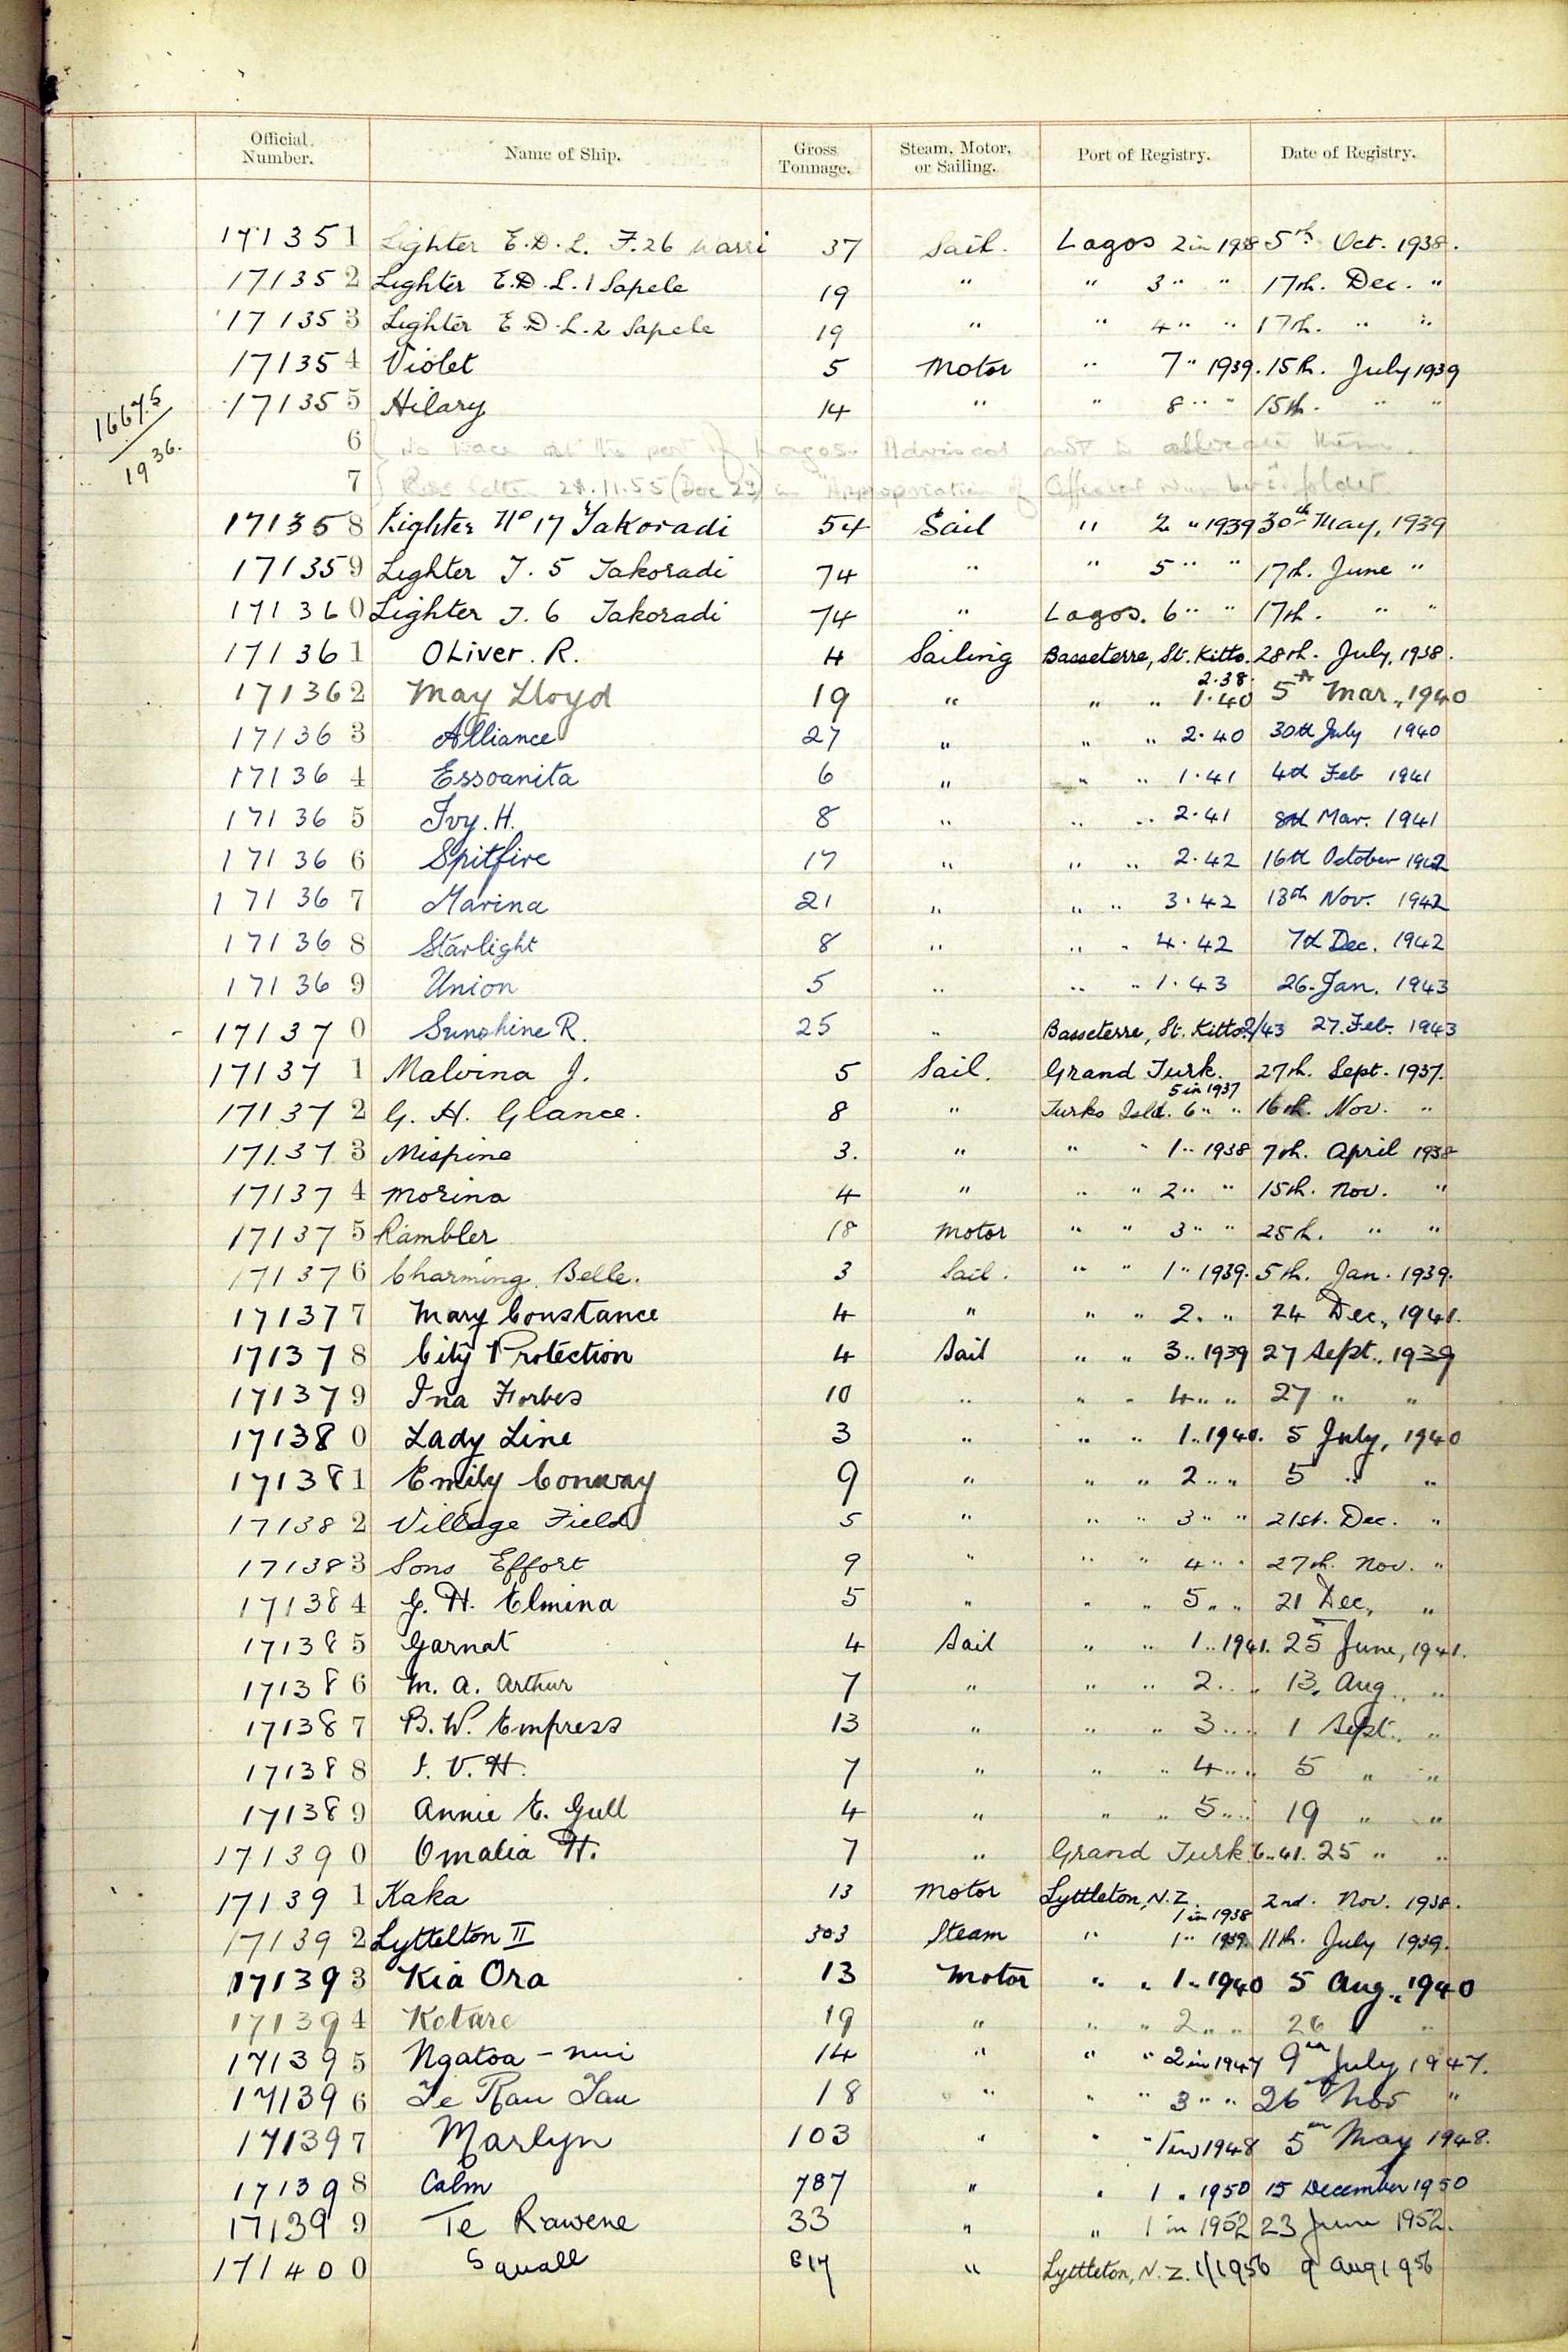 Official Number. Name of Ship. Gross Tonnage. Steam, Motor, or Sailing. Port of Registry. Date of Registry.
171351 Lighter E.D.L. F.26 Warri 37 Sail. Lagos 2 in 1938 5th Oct. 1938.
171352 Lighter E.D.L. 1 Sapele 19 " " 3 " " 17th. Dec. "
171353 Lighter E.D.L. 2 Sapele 19 " " 4 " " 17th. " "
171354 Violet 5 Motor " 7 " 1939. 15th. July 1939
16675/1936. 171355 Hilary 14 " " 8 " " 15th. " "
6 No trace at the port of Lagos. Advised not to allocate them.
7 letter 28.11.55 (Doc 23) in "Appropriation of Official Numbers" folder
171358 Lighter No 17 Takoradi 54 Sail " 2 " 1939 30th May, 1939
171359 Lighter T. 5 Takoradi 74 " " 5 " " 17th. June "
171360 Lighter T. 6 Takoradi 74 " Lagos. 6 " " 17th. " "
171361 Oliver. R. 4 Sailing Basseterre, St. Kitts. 2.38. 28th. July, 1938.
171362 May Lloyd 19 " " " 1.40 5th Mar., 1940
171363 Alliance 27 " " " 2.40 30th July 1940
171364 Essoanita 6 " " " 1.41 4th Feb 1941
171365 Ivy. H. 8 " " " 2.41 8th Mar. 1941
171366 Spitfire 17 " " " 2.42 16th October 1942
171367 Marina 21 " " " 3.42 13th Nov. 1942
171368 Starlight 8 " " " 4.42 7th Dec. 1942
171369 Union 5 " " " 1.43 26. Jan. 1943
171370 Sunshine R. 25 " Basseterre, St. Kitts. 2/43 27. Feb. 1943
171371 Malvina J. 5 Sail. Grand Turk. 5 in 1937 27th. Sept. 1937.
171372 G. H. Glance. 8 " Turks Isld. 6 " " 16th. Nov. "
171373 Mispine 3. " " " 1 " 1938 7th. April 1938
171374 Morina 4 " " " 2 " " 15th. Nov. "
171375 Rambler 18 Motor " " 3 " " 25th. " "
171376 Charming Belle. 3 Sail. " " 1 " 1939. 5th. Jan. 1939.
171377 Mary Constance 4 " " " 2. " 24 Dec., 1941.
171378 City Protection 4 Sail " " 3 " 1939 27 Sept., 1939
171379 Ina Forbes 10 " " " 4 " " 27 " "
171380 Lady Line 3 " " " 1 " 1940. 5 July, 1940
171381 Emily Conway 9 " " " 2 " " 5 " "
171382 Village Field 5 " " " 3 " " 21st. Dec. "
171383 Sons Effort 9 " " " 4 " " 27th. Nov. "
171384 G. H. Elmina 5 " " " 5 " " 21 Dec, "
171385 Garnat 4 Sail " " 1 " 1941. 25 June, 1941.
171386 M. A. Arthur 7 " " " 2 " " 13, Aug., "
171387 B. W. Empress 13 " " " 3 " " 1 Sept., "
171388 I. V. H. 7 " " " 4 " " 5 " "
171389 Annie E. Gull 4 " " " 5 " " 19 " "
171390 Omalia H. 7 " Grand Turk. 6 " 41. 25 " "
171391 Kaka 13 Motor Lyttleton, N.Z. 1 in 1938 2nd. Nov. 1938.
171392 Lyttelton II 303 Steam " 1 " 1939. 11th. July 1939.
171393 Kia Ora 13 Motor " " 1 " 1940 5 Aug., 1940
171394 Kotare 19 " " " 2 " " 26 " "
171395 Ngatoa-nui 14 " " " 2 in 1947 9th July 1947.
171396 Te Rau Tau 18 " " " 3 " " 26th Nov "
171397 Marlyn 103 " " " 1 in 1948 5th May 1948.
171398 Calm 787 " " 1 " 1950 15 December 1950
171399 Te Rawene 33 " " 1 in 1952 23 June 1952.
171400 Squall 817 " Lyttleton, N.Z. 1/1956 9 Aug 1956